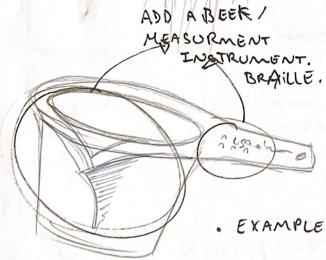 ADD A BEEK /
MEASURMENT
INSTRUMENT.
BRAILLE.
• EXAMPLE